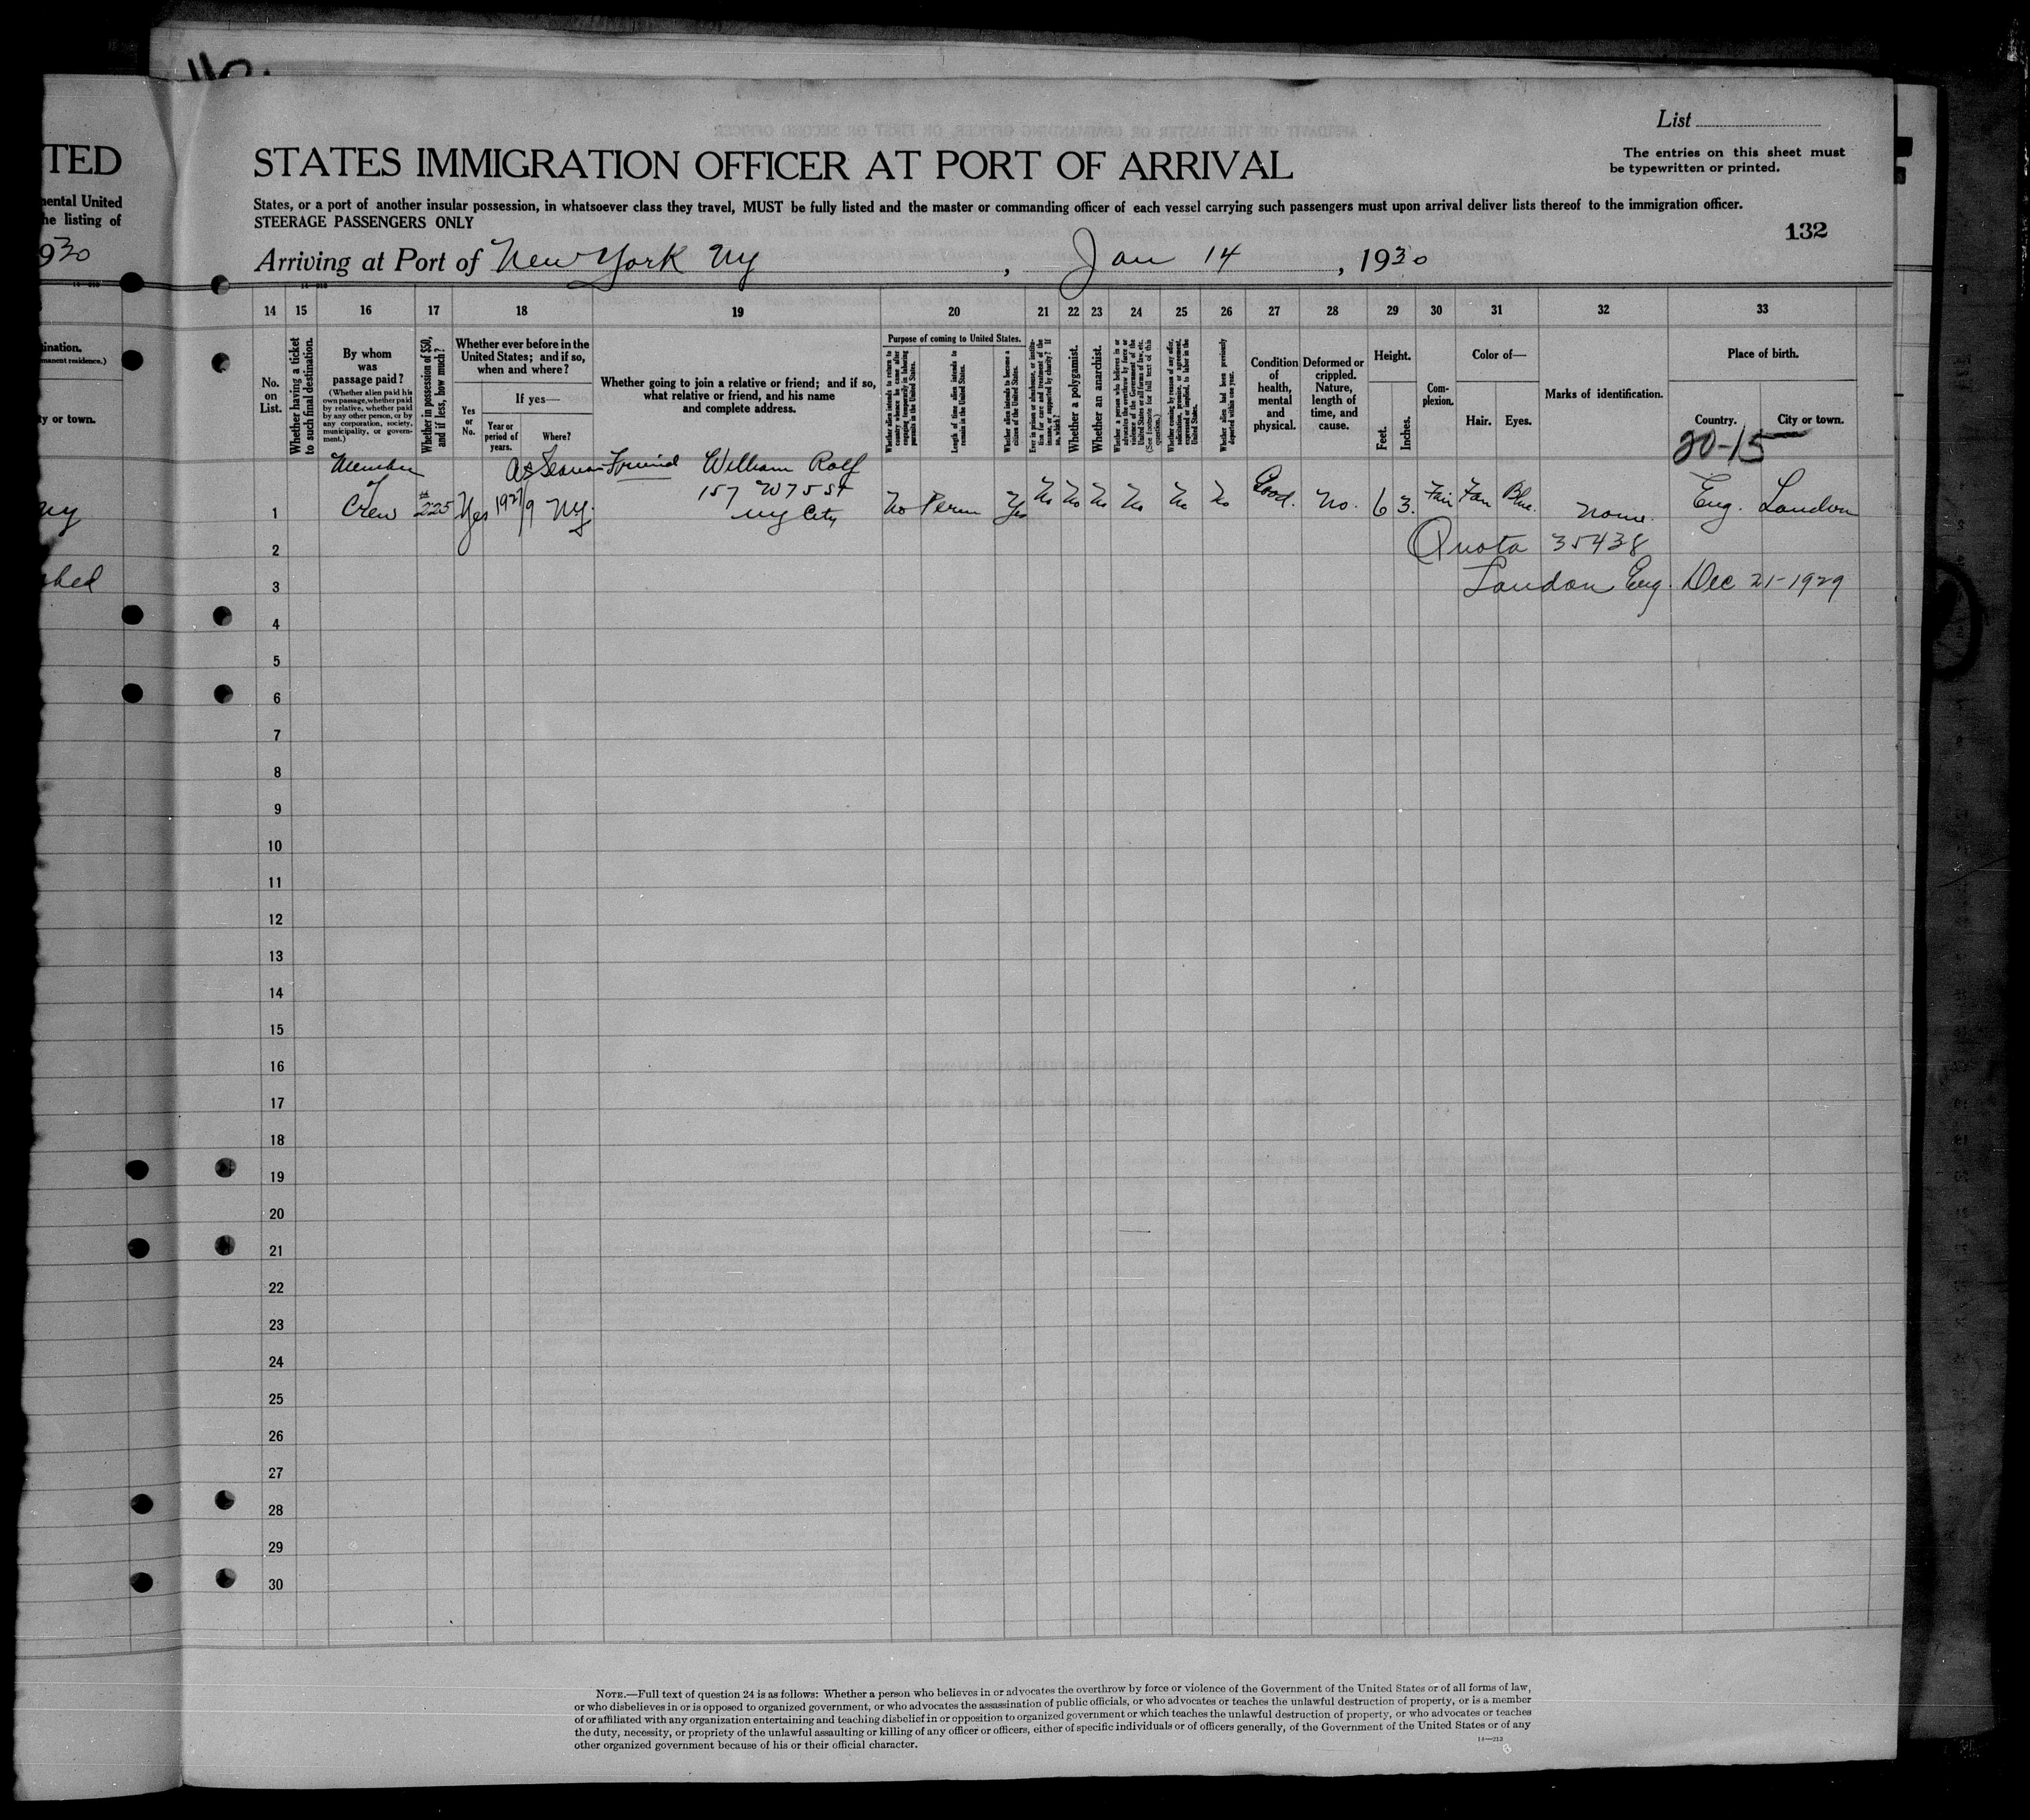 TED
mental United
the listing of
930
List
The entries on this sheet must
be typewritten or printed.
STATES IMMIGRATION OFFICER AT PORT OF ARRIVAL
States, or a port of another insular possession, in whatsoever class they travel, MUST be fully listed and the master or commanding officer of each vessel carrying such passengers must upon arrival deliver lists thereof to the immigration officer.
STEERAGE PASSENGERS ONLY
132
Arriving at Port of New York Ny, Jan 14, 1930
14 15 16 17 18 19 20 21 22 23 24 25 26 27 28 29 30 31 32 33
No. on List.
Whether having a ticket to such final destination.
By whom was passage paid?
(Whether alien paid his own passage, whether paid by relative, whether paid by any other person, or by any corporation, society, municipality, or government.)
Whether in possession of $50, and if less, how much?
Whether ever before in the United States; and if so, when and where?
Yes or No.
If yes—
Year or period of years.
Where?
Whether going to join a relative or friend; and if so, what relative or friend, and his name and complete address.
Purpose of coming to United States.
Whether alien intends to return to country whence he came after engaging temporarily in laboring pursuits in the United States.
Length of time alien intends to remain in the United States.
Whether alien intends to become a citizen of the United States.
Ever in prison or almshouse, or institution for care and treatment of the insane, or supported by charity? If so, which?
Whether a polygamist.
Whether an anarchist.
Whether a person who believes in or advocates the overthrow by force or violence of the Government of the United States or all forms of law, etc. (See footnote for full text of this question.)
Whether coming by reason of any offer, solicitation, promise, or agreement, expressed or implied, to labor in the United States.
Whether alien had been previously deported within one year.
Condition of health, mental and physical.
Deformed or crippled. Nature, length of time, and cause.
Height.
Feet.
Inches.
Complexion.
Color of—
Hair.
Eyes.
Marks of identification.
Place of birth.
Country.
City or town.
ination.
manent residence.)
ty or town.
20-15
Member As Seaman Friend William Rolf
of 157 W 75 St
1 Crew $225 Yes 1927/9 Ny. Ny City No Perm Yes No No No No No No Good. No. 6 3. Fair Fair Blue. None. Eng. London
ny
2 Quota 35438
shed
3 London Eng. Dec 21-1929
4
5
6
7
8
9
10
11
12
13
14
15
16
17
18
19
20
21
22
23
24
25
26
27
28
29
30
NOTE.—Full text of question 24 is as follows: Whether a person who believes in or advocates the overthrow by force or violence of the Government of the United States or of all forms of law,
or who disbelieves in or is opposed to organized government, or who advocates the assassination of public officials, or who advocates or teaches the unlawful destruction of property, or is a member
of or affiliated with any organization entertaining and teaching disbelief in or opposition to organized government or which teaches the unlawful destruction of property, or who advocates or teaches
the duty, necessity, or propriety of the unlawful assaulting or killing of any officer or officers, either of specific individuals or of officers generally, of the Government of the United States or of any
other organized government because of his or their official character.
14—213